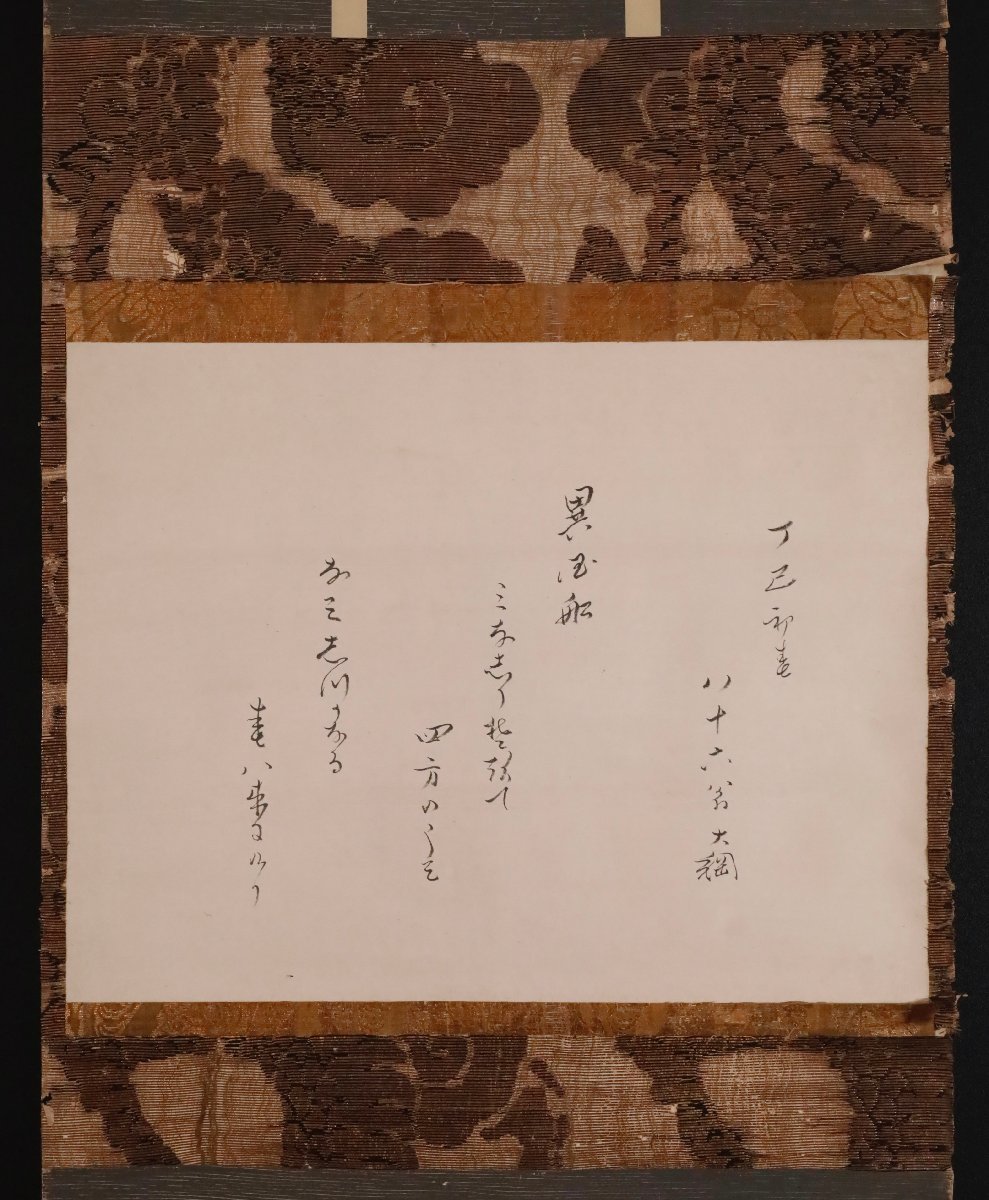 丁巳初春
八十六翁 大綱
異国船
三な志りそけて
四方のうミ
なミ志川かなる
春ハ来にけり